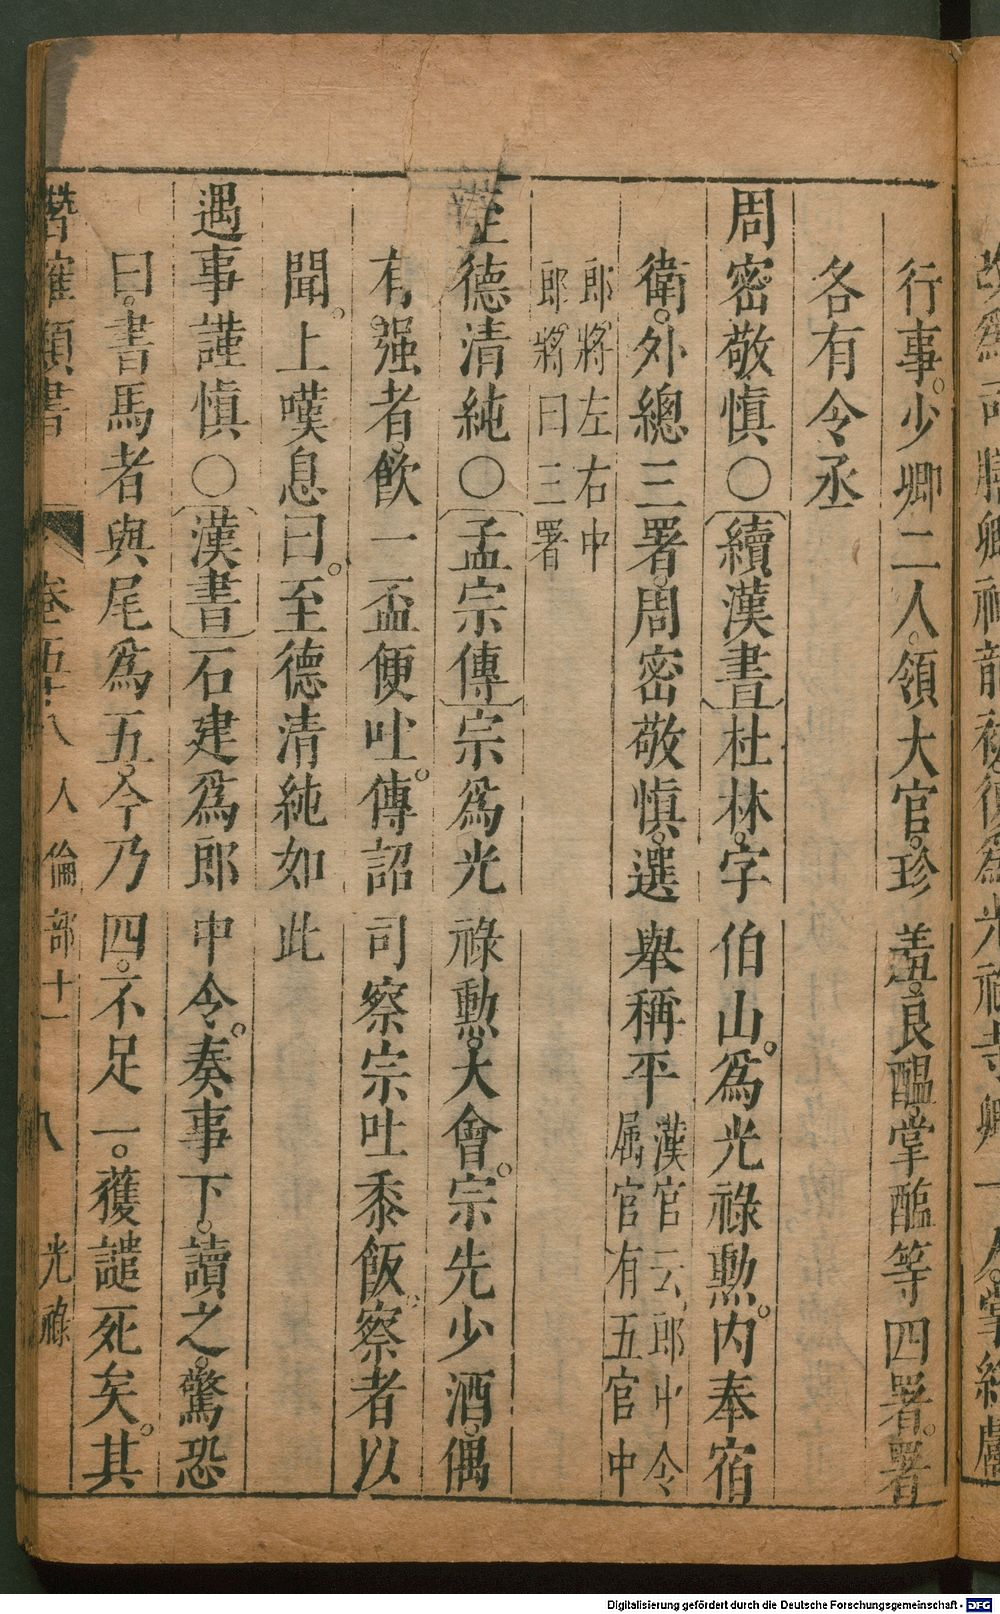 行事。少卿二人。領大官。珍羞。良醞。掌醢等四署。署
各有令丞
周密敬慎○續漢書杜林。字伯山。爲光祿勲。内奉宿
衛。外總三署。周密敬慎。選舉稱平漢官云。郎中令
属官有五官中
郎將。左右中
郎將曰三署
至德清純○孟宗傳宗爲光祿勲。大會。宗先少酒。偶
有强者。飲一盃便吐。傳詔司察宗吐黍飯。察者以
聞。上嘆息曰。至德清純如此
遇事謹慎○漢書石建爲郎中令。奏事下。讀之。驚恐
曰。書馬者與尾爲五。今乃四。不足一。獲譴死矣。其
潛確類書 卷五十八 人倫部十一 八 光祿
Digitalisierung gefördert durch die Deutsche Forschungsgemeinschaft - DFG